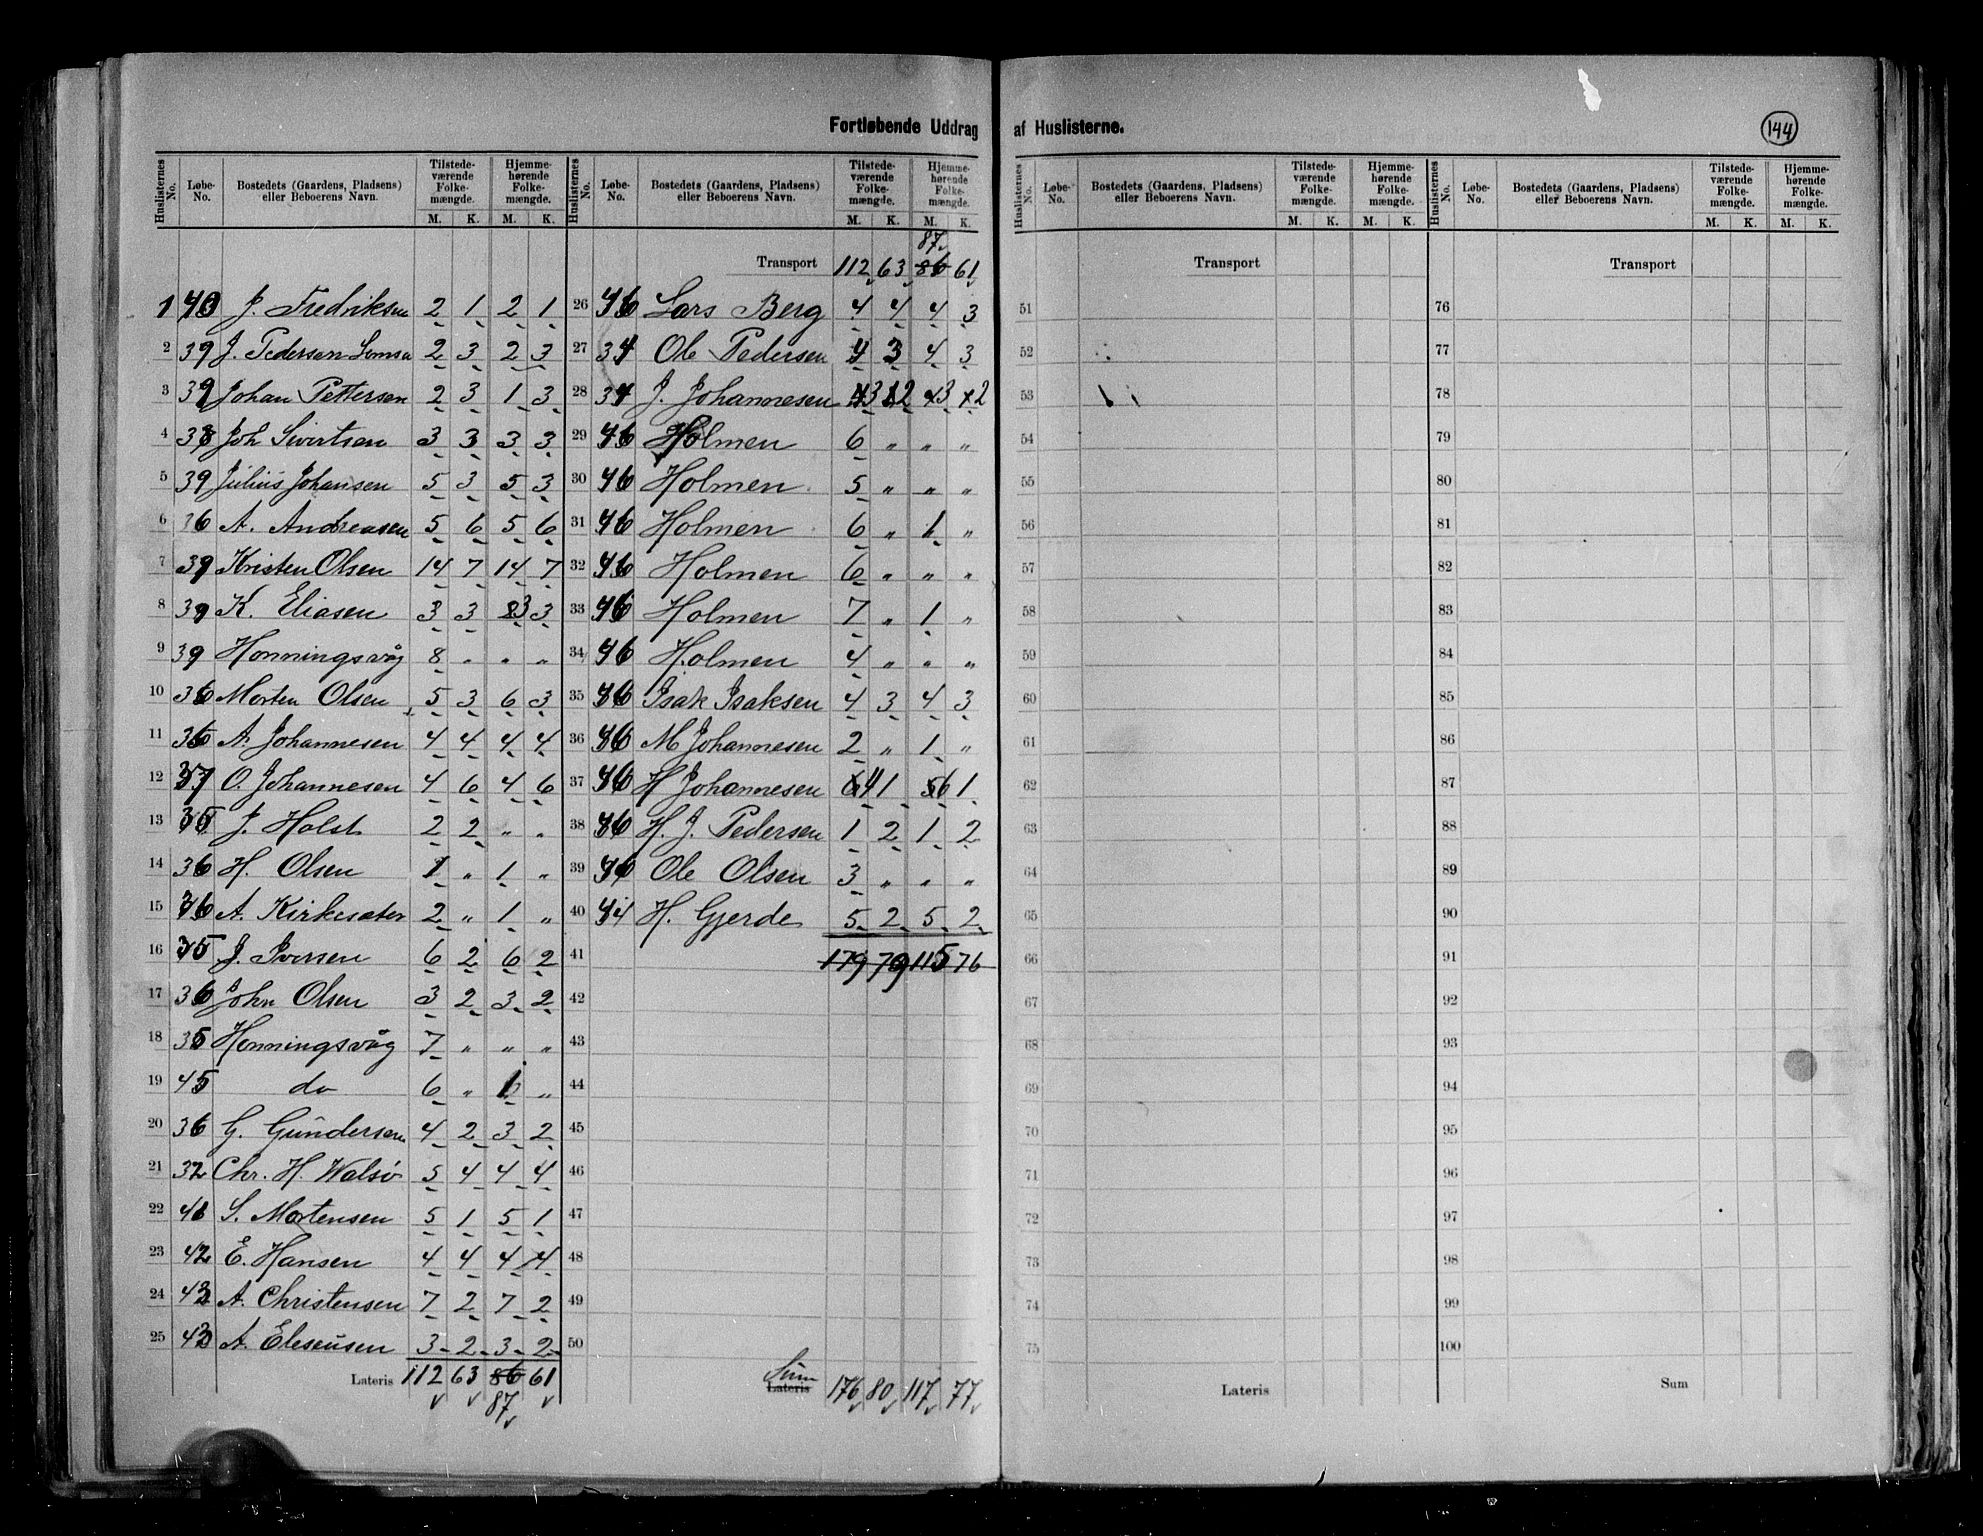 Fortløbende Uddrag af Huslisterne.
144
Huslisternes No. Løbe-No. Bostedets (Gaardens, Pladsens) eller Beboerens Navn. Tilstedeværende Folkemængde. M. K. Hjemmehørende Folkemængde. M. K.
1 40 J. Fredriksen 2 1 2 1
2 39 J. Pedersen 2 3 2 3
3 39 Johan Pettersen 2 3 1 3
4 38 Joh Sivertsen 3 3 3 3
5 39 Julius Johansen 5 3 5 3
6 36 A. Andreasen 5 6 5 6
7 39 Kristen Olsen 14 7 14 7
8 39 K. Eliasen 3 3 3 3
9 39 Honningsvåg 8 " " "
10 36 Morten Olsen 5 3 6 3
11 36 A. Johannesen 4 4 4 4
12 37 O. Johannesen 4 6 4 6
13 35 J. Holst 2 2 " "
14 36 H. Olsen 1 " 1 "
15 36 A. Kirkesæter 2 " 1 "
16 35 J. Iversen 6 2 6 2
17 36 John Olsen 3 2 3 2
18 35 Honningsvåg 7 " " "
19 45 do 6 " 1 "
20 36 G. Gundersen 4 2 3 2
21 32 Chr. H. Walsø 5 4 4 4
22 41 S. Mortensen 5 1 5 1
23 42 E. Hansen 4 4 4 4
24 43 A. Christensen 7 2 7 2
25 43 A. Eleseusen 3 2 3 2
Lateris 112 63 86 61
87
Huslisternes No. Løbe-No. Bostedets (Gaardens, Pladsens) eller Beboerens Navn. Tilstedeværende Folkemængde. M. K. Hjemmehørende Folkemængde. M. K.
87
Transport 112 63 86 61
26 46 Lars Berg 4 4 4 3
27 34 Ole Pedersen 4 3 4 3
28 34 J. Johannesen 3 2 3 2
29 46 Holmen 6 " " "
30 46 Holmen 5 " " "
31 46 Holmen 6 " 1 "
32 46 Holmen 6 " " "
33 46 Holmen 7 " 1 "
34 46 Holmen 4 " " "
35 46 Isak Isaksen 4 3 4 3
36 46 M Johannesen 2 " 1 "
37 46 H Johannesen 4 1 6 1
38 46 H. J. Pedersen 1 2 1 2
39 Ole Olsen 3 " " "
40 44 H. Gjerde 5 2 5 2
41 179 79 115 76
42
43
44
45
46
47
48
49
50
Sum
Lateris 176 80 117 77
Huslisternes No. Løbe-No. Bostedets (Gaardens, Pladsens) eller Beboerens Navn. Tilstedeværende Folkemængde. M. K. Hjemmehørende Folkemængde. M. K.
Transport
51
52
53
54
55
56
57
58
59
60
61
62
63
64
65
66
67
68
69
70
71
72
73
74
75
Lateris
Huslisternes No. Løbe-No. Bostedets (Gaardens, Pladsens) eller Beboerens Navn. Tilstedeværende Folkemængde. M. K. Hjemmehørende Folkemængde. M. K.
Transport
76
77
78
79
80
81
82
83
84
85
86
87
88
89
90
91
92
93
94
95
96
97
98
99
100
Sum